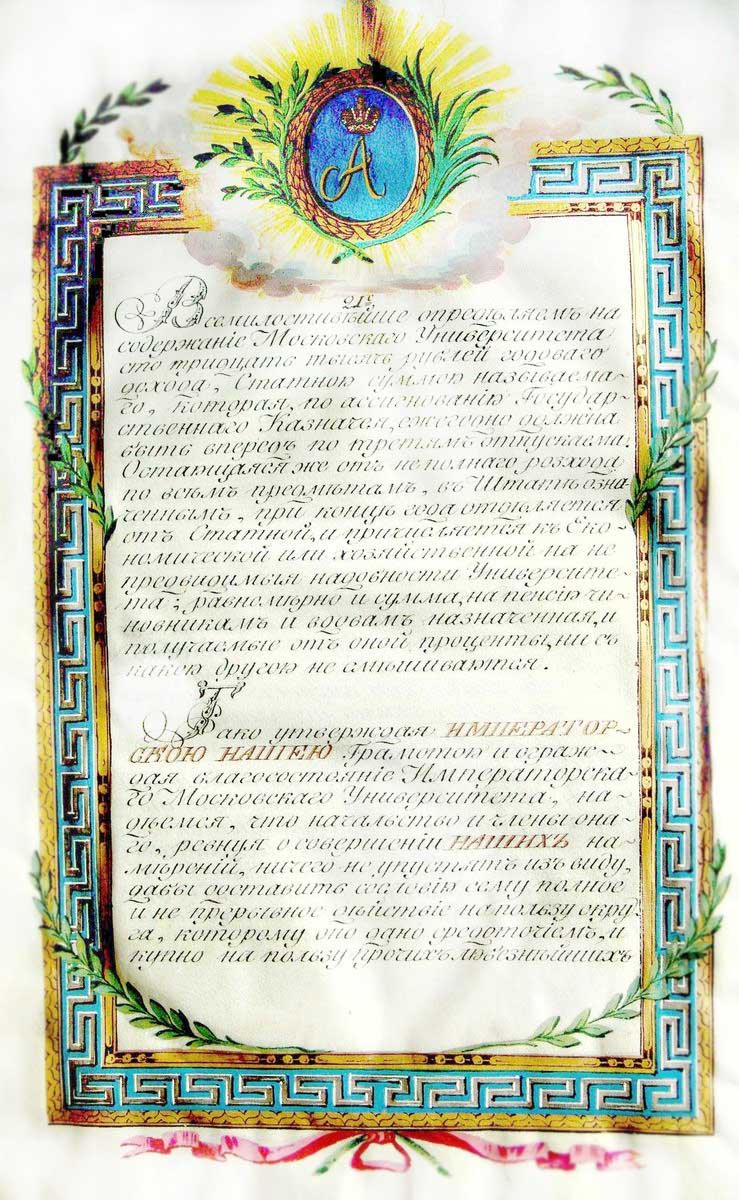 А
21е.
Всемилостивѣйше опредѣляемъ на
содержаніе Московскаго Университета
сто тридцать тысячь рублей годоваго
дохода, Статною суммою называема-
го, которая, по ассигнованію Государ-
ственнаго Казначея, ежегодно должна
быть впередъ по третямъ отпускаема.
Остающаяся же отъ неполнаго розхода
по всѣмъ предмѣтамъ, въ Штатѣ озна-
ченнымъ, при концѣ года отдѣляется
отъ Статной, и причисляется къ Еко-
номической или хозяйственной на не
предвидимыя надобности Университе-
та; равномѣрно и сумма, на пенсію чи-
новникамъ и вдовамъ назначенная, и
получаемые отъ оной проценты, ни съ
какою другою не смѣшиваются.
Тако утверждая ИМПЕРАТОР-
СКОЮ НАШЕЮ Грамотою и ограж-
дая благосостояніе Императорска-
го Московскаго Университета, на-
дѣемся, что начальство и члены она-
го, ревнуя о совершеніи НАШИХЪ на-
мѣреній, ничего не упустятъ изъ виду,
дабы доставить сословію сему полное
и не прерывное дѣйствіе на пользу окру-
га, которому оно дано средоточіемъ, и
купно на пользу прочихъ любезнѣйшихъ